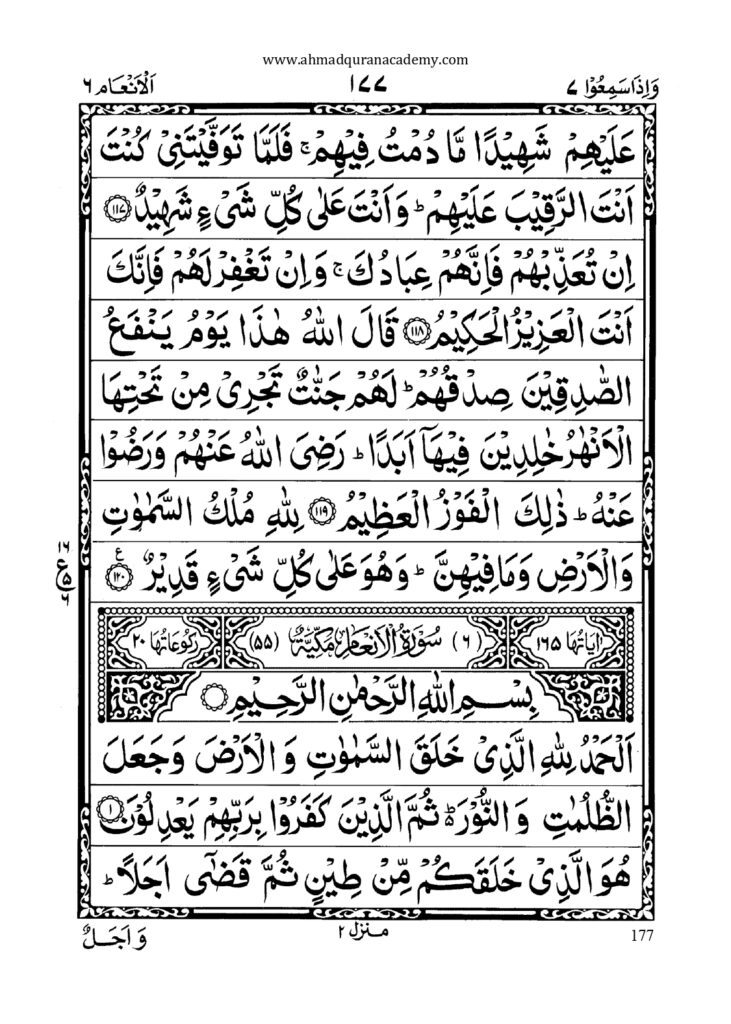 www.ahmadquranacademy.com
وَاِذَاسَمِعُوْا ۷ ۱۷۷ اَلْاَنْعَام ۶
عَلَيْهِمْ شَهِيْدًا مَّا دُمْتُ فِيْهِمْ ۚ فَلَمَّا تَوَفَّيْتَنِيْ كُنْتَ
اَنْتَ الرَّقِيْبَ عَلَيْهِمْ ؕ وَاَنْتَ عَلٰى كُلِّ شَيْءٍ شَهِيْدٌ ﴿۱۱۷﴾
اِنْ تُعَذِّبْهُمْ فَاِنَّهُمْ عِبَادُكَ ۚ وَاِنْ تَغْفِرْ لَهُمْ فَاِنَّكَ
اَنْتَ الْعَزِيْزُ الْحَكِيْمُ ﴿۱۱۸﴾ قَالَ اللّٰهُ هٰذَا يَوْمُ يَنْفَعُ
الصّٰدِقِيْنَ صِدْقُهُمْ ؕ لَهُمْ جَنّٰتٌ تَجْرِيْ مِنْ تَحْتِهَا
الْاَنْهٰرُ خٰلِدِيْنَ فِيْهَاۤ اَبَدًا ؕ رَضِيَ اللّٰهُ عَنْهُمْ وَرَضُوْا
عَنْهُ ؕ ذٰلِكَ الْفَوْزُ الْعَظِيْمُ ﴿۱۱۹﴾ لِلّٰهِ مُلْكُ السَّمٰوٰتِ
وَالْاَرْضِ وَمَا فِيْهِنَّ ؕ وَهُوَ عَلٰى كُلِّ شَيْءٍ قَدِيْرٌ ﴿۱۲۰﴾ ع
۱۶
ع ۵
۶
اٰيَاتُهَا ۱۶۵ (۶) سُوْرَةُ الْاَنْعَامِ مَكِّيَّةٌ (۵۵) رُكُوْعَاتُهَا ۲۰
بِسْمِ اللّٰهِ الرَّحْمٰنِ الرَّحِيْمِ
اَلْحَمْدُ لِلّٰهِ الَّذِيْ خَلَقَ السَّمٰوٰتِ وَالْاَرْضَ وَجَعَلَ
الظُّلُمٰتِ وَالنُّوْرَ ؕ ثُمَّ الَّذِيْنَ كَفَرُوْا بِرَبِّهِمْ يَعْدِلُوْنَ ﴿۱﴾
هُوَ الَّذِيْ خَلَقَكُمْ مِّنْ طِيْنٍ ثُمَّ قَضٰۤى اَجَلًا ؕ
177 منزل ۲ وَاَجَلٌ